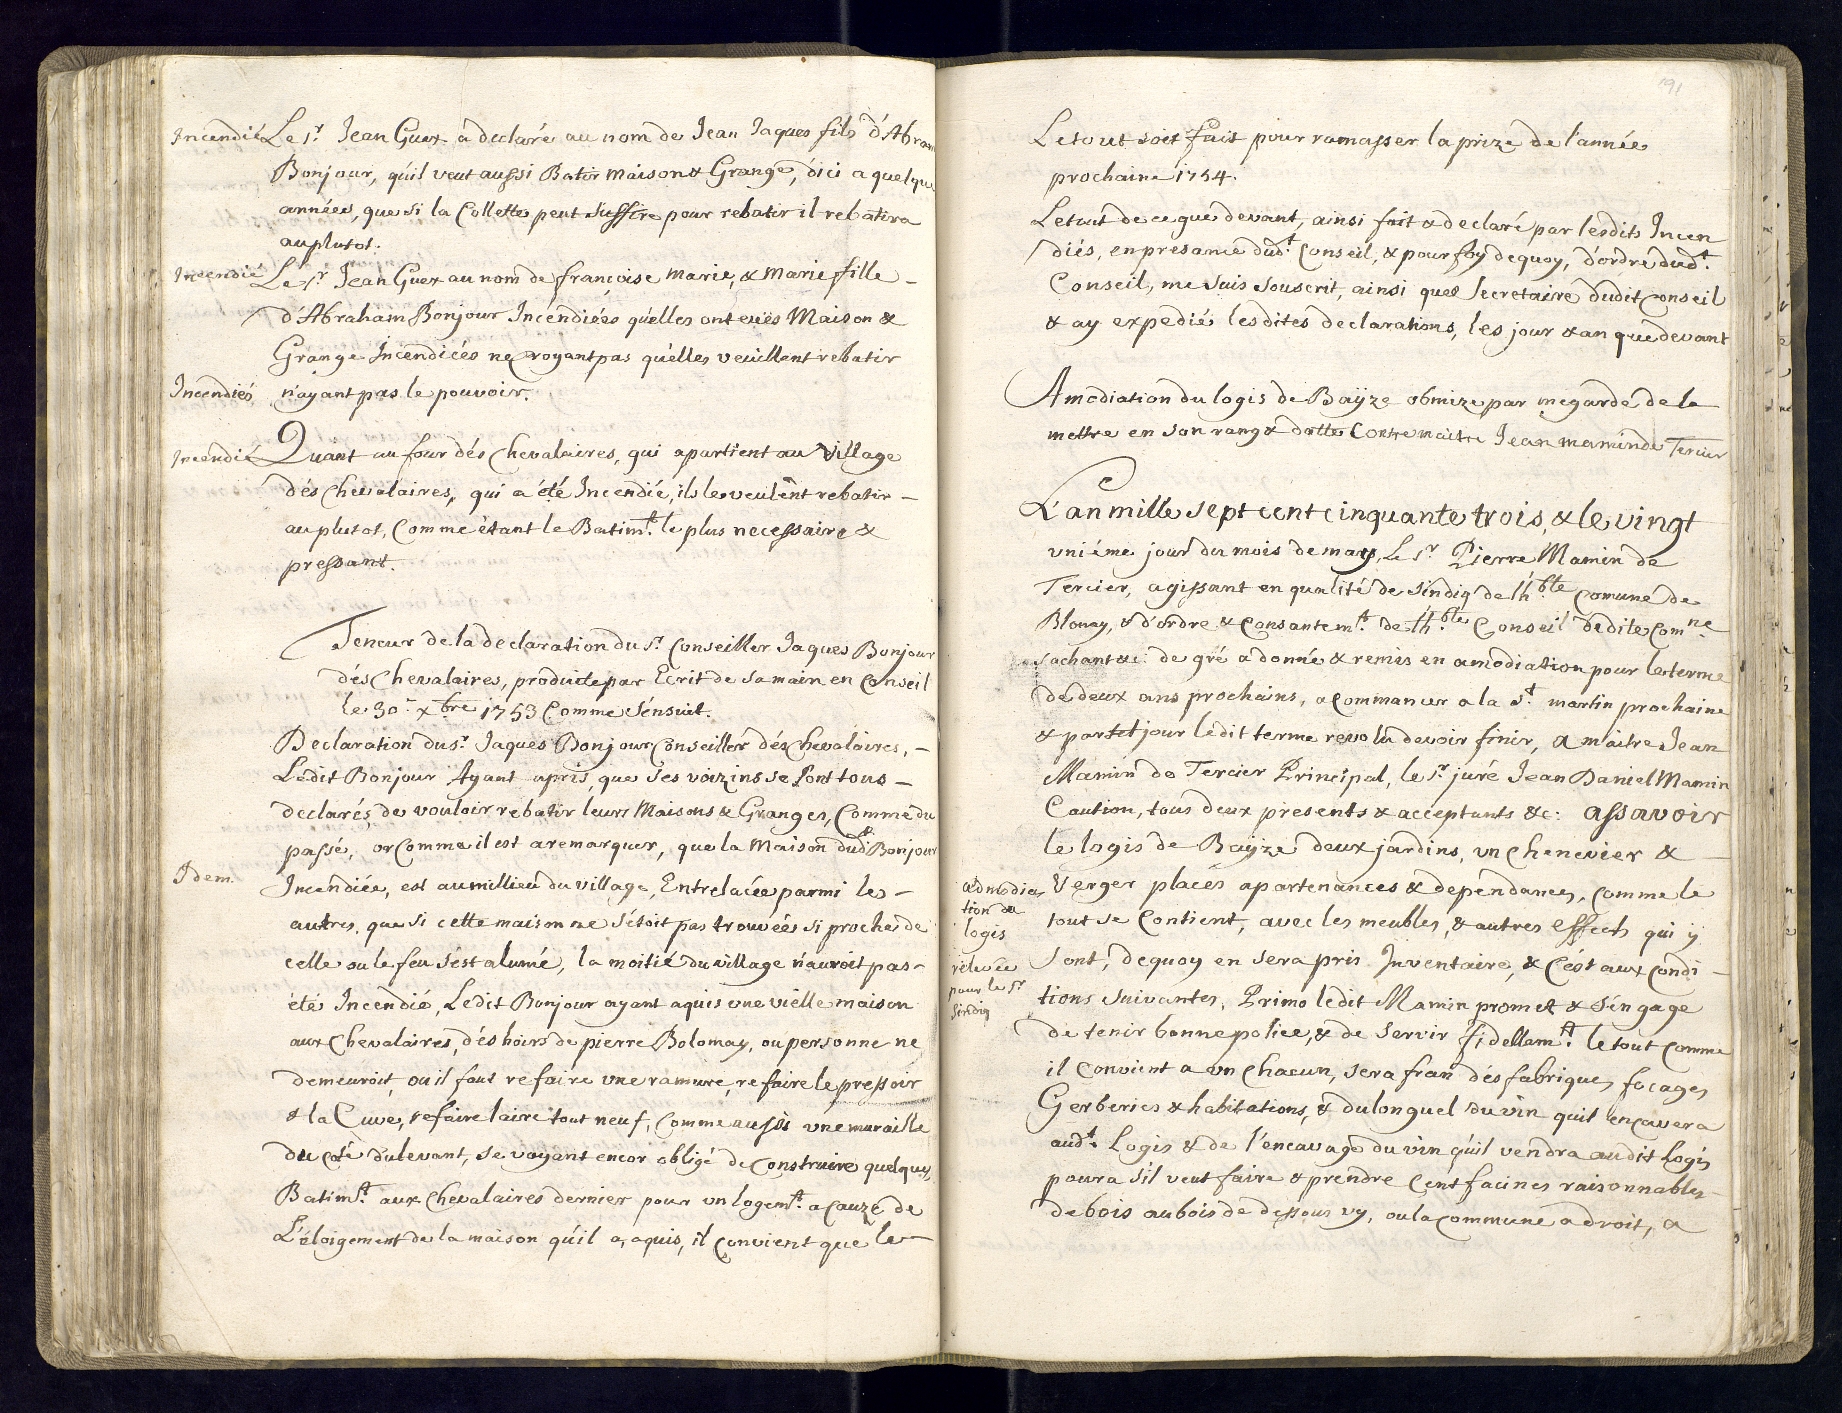 Incendié Le Sr. Jean Guex a declaré au nom de Jean Jaques fils d'Abram
Bonjour, qu'il veut aussi Batir Maison & Grange, dici a quelque
années, que si la Collette peut suffire pour rebatir il rebatira
auplutot.
Incendié Le Sr. Jean Guex au nom de françoise Marie, & Marie fille
d'Abraham Bonjour Incendiées qu'elles ont euës Maison &
Grange Incendiées ne croyant pas qu'elles veuillent rebatir
Incendiés n'ayant pas le pouvoir.
Incendié Quant au four dés Chevalaires, qui apartient au Village
dés Chevalaires, qui a été Incendié, ils le veulent rebatir
auplutot, Comme étant le Batimt. le plus necessaire &
pressant.
Teneur de la declaration du Sr. Conseiller Jaques Bonjour
dés Chevalaires, produite par Ecrit de sa main en Conseil
le 30e. xbre 1753 Comme s'ensuit.
Declaration du Sr. Jaques Bonjour Conseiller dés Chevalaires,
Ledit Bonjour Ayant apris, que ses voizins se sont tous
declarés de vouloir rebatir leurs Maisons & Granges, Comme du
passé, or comme il est a remarquer, que la Maison dudt. Bonjour
Idem. Incendiée, est au millieu du village, Entrelacée parmi les
autres, que si cette maison ne s'étoit pas trouvées si proche de
celle ou le feu s'est alumé, la moitié du village n'auroit pas
été Incendié, Ledit Bonjour ayant aquis une vielle maison
aux Chevalaires, dés hoirs de pierre Bolomay, ou personne ne
demeuroit, ou il faut refaire une ramure, refaire le pressoir
& la Cuve, refaire laire tout neuf, comme aussi une muraille
du coté dulevant, se voyant encor obligé de Construire quelques
Batimt. aux Chevalaires dernier pour un logemt. a cauze de
L'éloigement de la maison qu'il a, aquis, il convient que le
191
Le tout soit fait pour ramasser la prize de l'année
prochaine 1754.
Le tout de ce que devant, ainsi fait & declaré par lesdits Incen
diés, en presance dudt. Conseil, & pour foy dequoy, d'ordre dudt.
Conseil, me suis souscrit, ainsi que Secretaire dudit Conseil
& ay expedié lesdites declarations, les jour & an que devant
Amodiation du logis de Baÿze obmize par megarde de la
mettre en son rang & datte Contre maitre Jean mamin de Tercier
L'an mille sept cent cinquante trois, & le vingt
uniéme jour du mois de may, Le Sr. Pierre Mamin de
Tercier, agissant en qualité de Sindiq de l'hble Comune de
Blonay, & d'ordre & Consantemt. de l'hble Conseil dedite Comne.
sachant &c: de gré a donné & remis en amodiation pour le terme
de deux ans prochains, a commancer a la St. martin prochaine
& par tel jour ledit terme revolu devoir finir, a maitre Jean
Mamin de Tercier Principal, le Sr. juré Jean Daniel Mamin
Caution, tous deux presents & acceptants &c: assavoir
le logis de Baÿze deux jardins, un Chenevier &
Verger placés apartenances & dependances, comme le
tout se Contient, avec les meubles, & autres effects qui y
sont, dequoy en sera pris Inventaire, & c'est aux condi
tions suivantes, Primo ledit Mamin promet & s'engage
de tenir bonne police, & de servir fidellemt. le tout comme
il convient a un Chacun, sera fran dés fabriques focages
Gerberies & habitations, & du longuel du vin quil encavera
audt. Logis & de l'encavage du vin qu'il vendra audit Logis
poura s'il veut faire & prendre Cent facines raisonnables
de bois au bois de dessous vy, ou la commune a droit, a
admodia
tion du
logis
relevée
pour le Sr
Sindiq